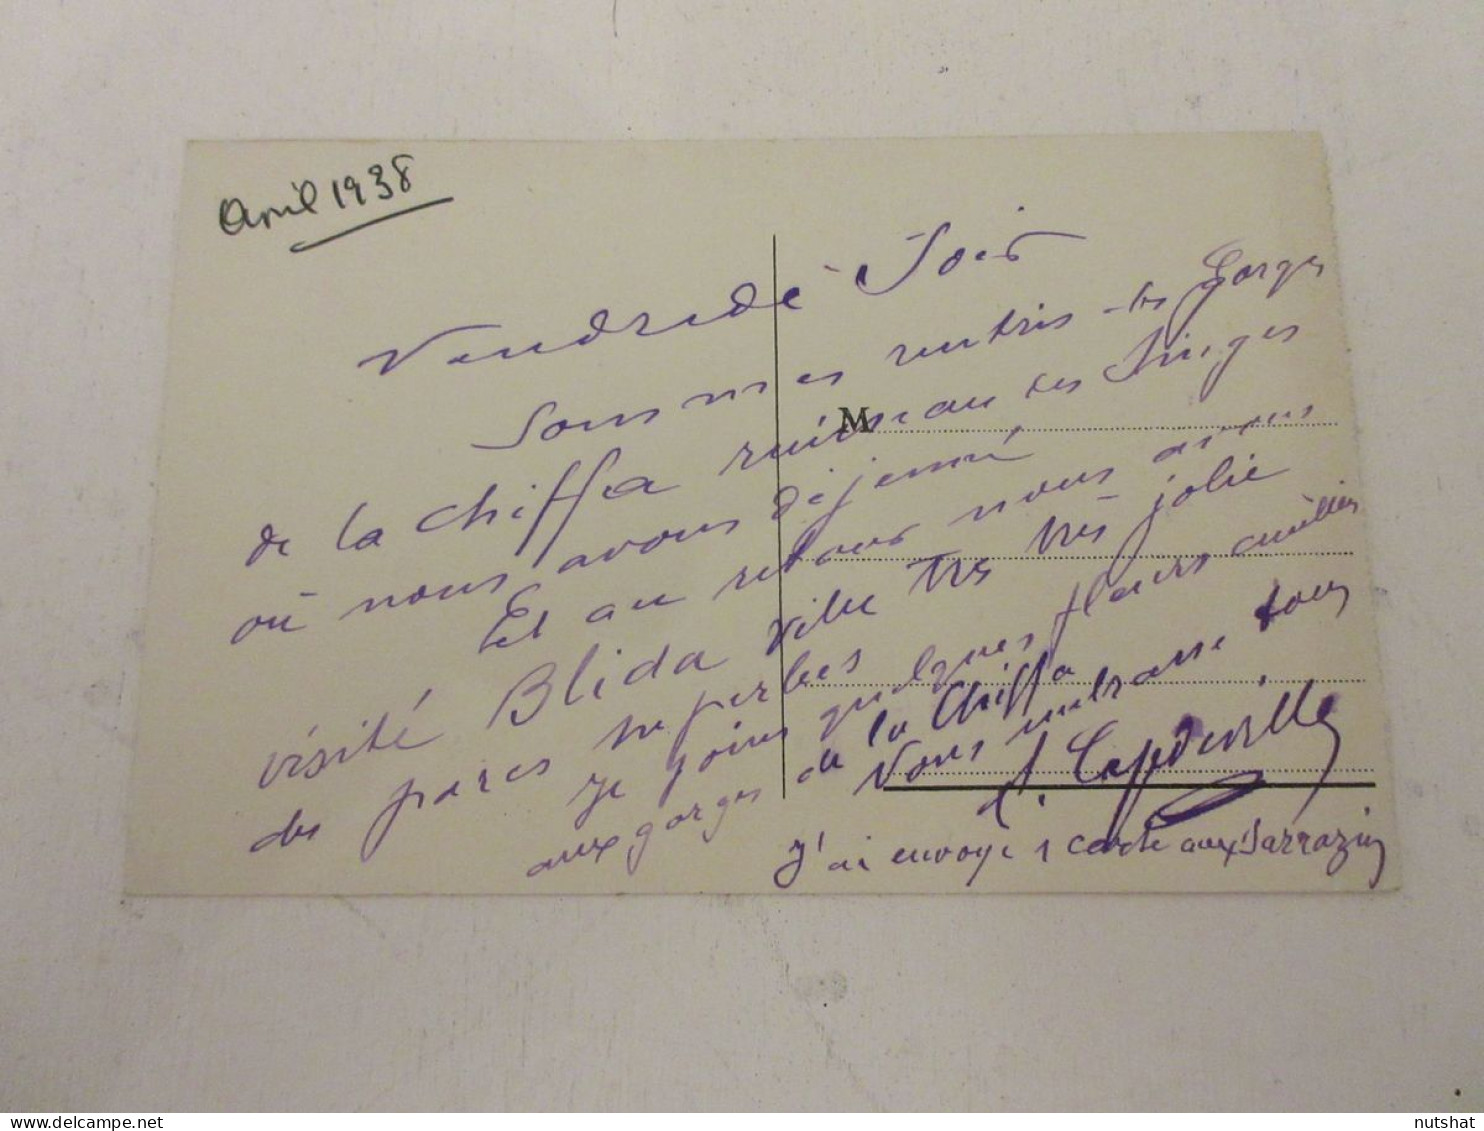 Avril 1938
Vendredi Soir
Sommes rentrés des Gorges
de la Chiffa ruisseau des Singes
où nous avons déjeuné
Et au retour nous avons
visité Blida ville très très jolie
des parcs superbes
je joins quelques fleurs cueillies
aux gorges de la Chiffa
Vous embrasse tous
Capdeville
J'ai envoyé 1 carte aux Sarrazin
M
delcampe.net
nutshat